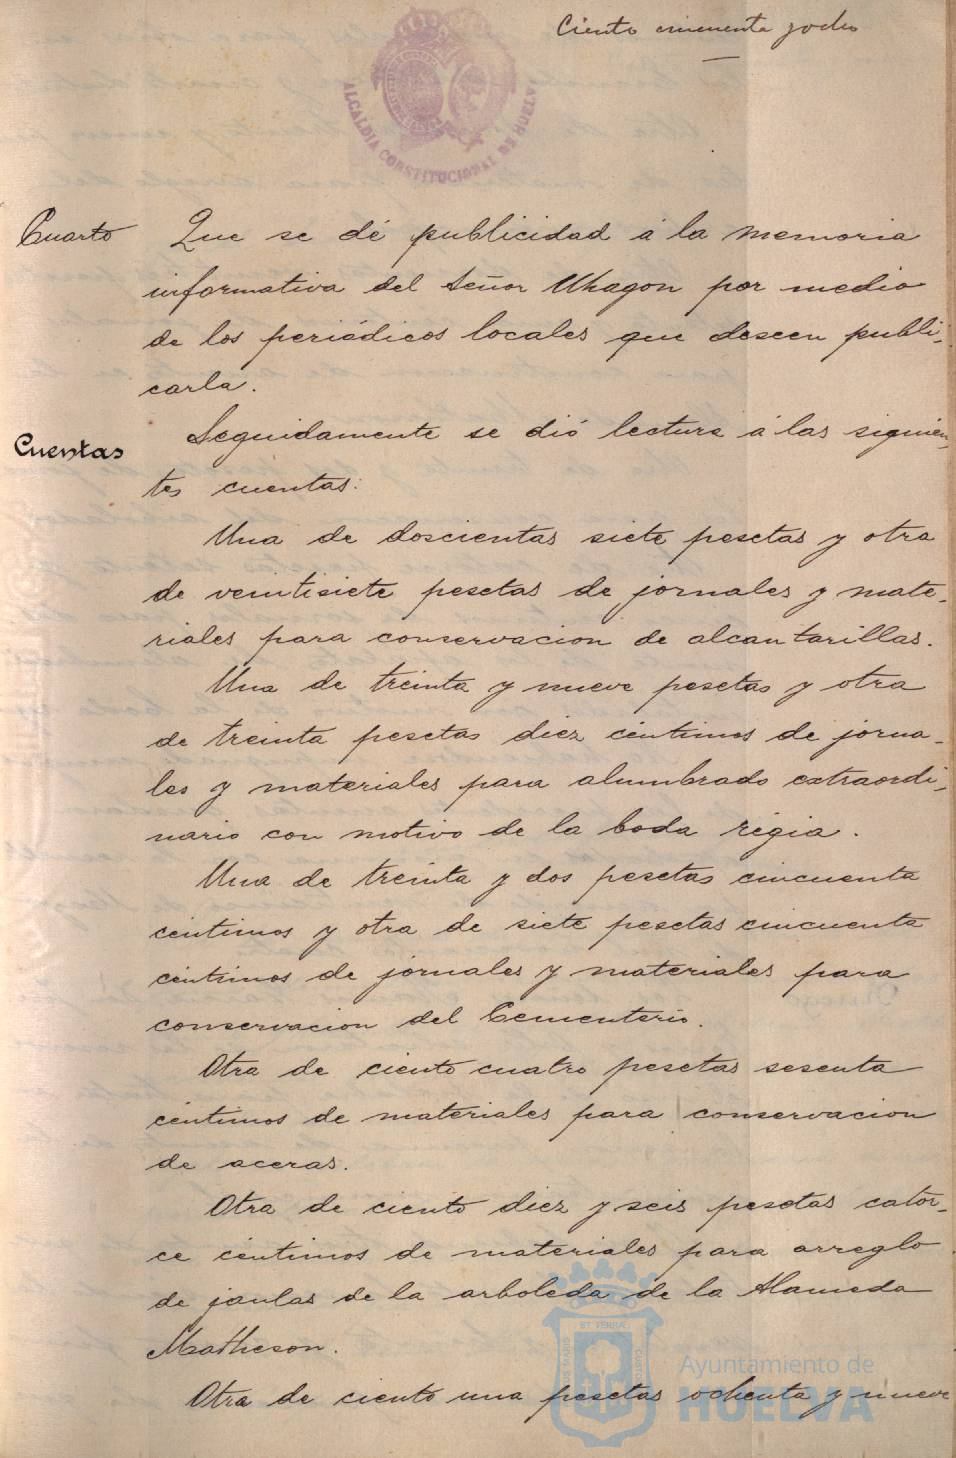 Ciento cincuenta y ocho
ALCALDIA CONSTITUCIONAL DE HUELVA
Cuarto Que se dé publicidad á la memoria
informativa del Señor Uhagon por medio
de los periódicos locales que deseen publi-
carla.
Cuentas Seguidamente se dió lectura á las siguien-
tes cuentas:
Una de doscientas siete pesetas y otra
de veintisiete pesetas de jornales y mate-
riales para conservacion de alcantarillas.
Una de treinta y nueve pesetas y otra
de treinta pesetas diez céntimos de jorna-
les y materiales para alumbrado extraordi-
nario con motivo de la boda régia.
Una de treinta y dos pesetas cincuenta
céntimos y otra de siete pesetas cincuenta
céntimos de jornales y materiales para
conservacion del Cementerio.
Otra de ciento cuatro pesetas sesenta
céntimos de materiales para conservacion
de aceras.
Otra de ciento diez y seis pesetas cator-
ce céntimos de materiales para arreglo
de jaulas de la arboleda de la Alameda
Matheson.
Otra de ciento una pesetas ochenta y nueve
Ayuntamiento de
HUELVA